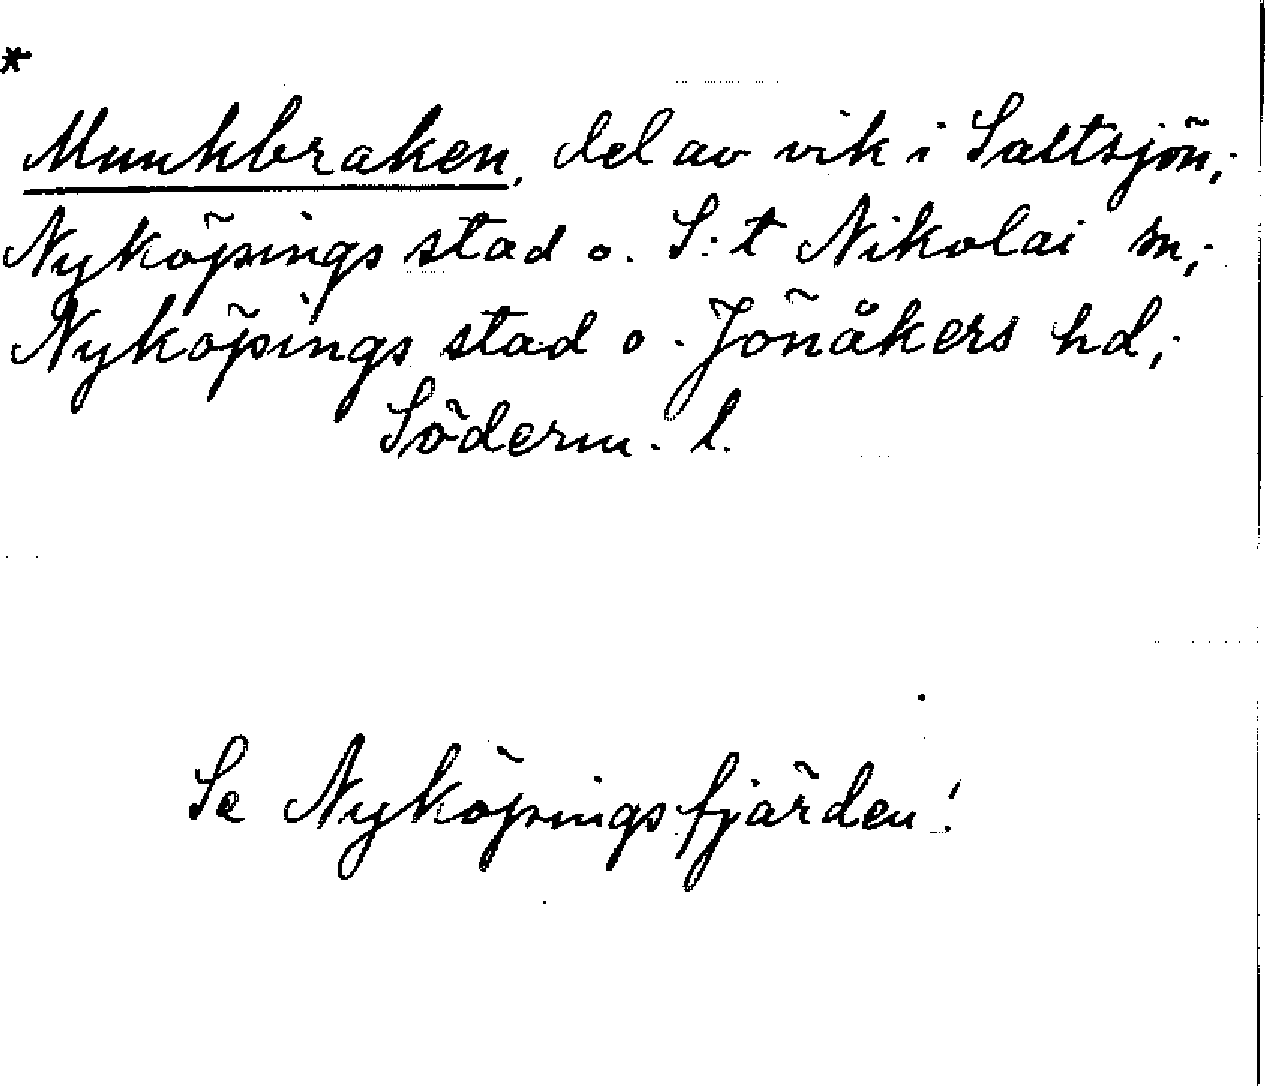 *
Munkbraken, del av vik i Saltsjön;
Nyköpings stad o. S:t Nikolai sn;
Nyköpings stad o. Jönåkers hd;
Söderm. l.
Se Nyköpingsfjärden!